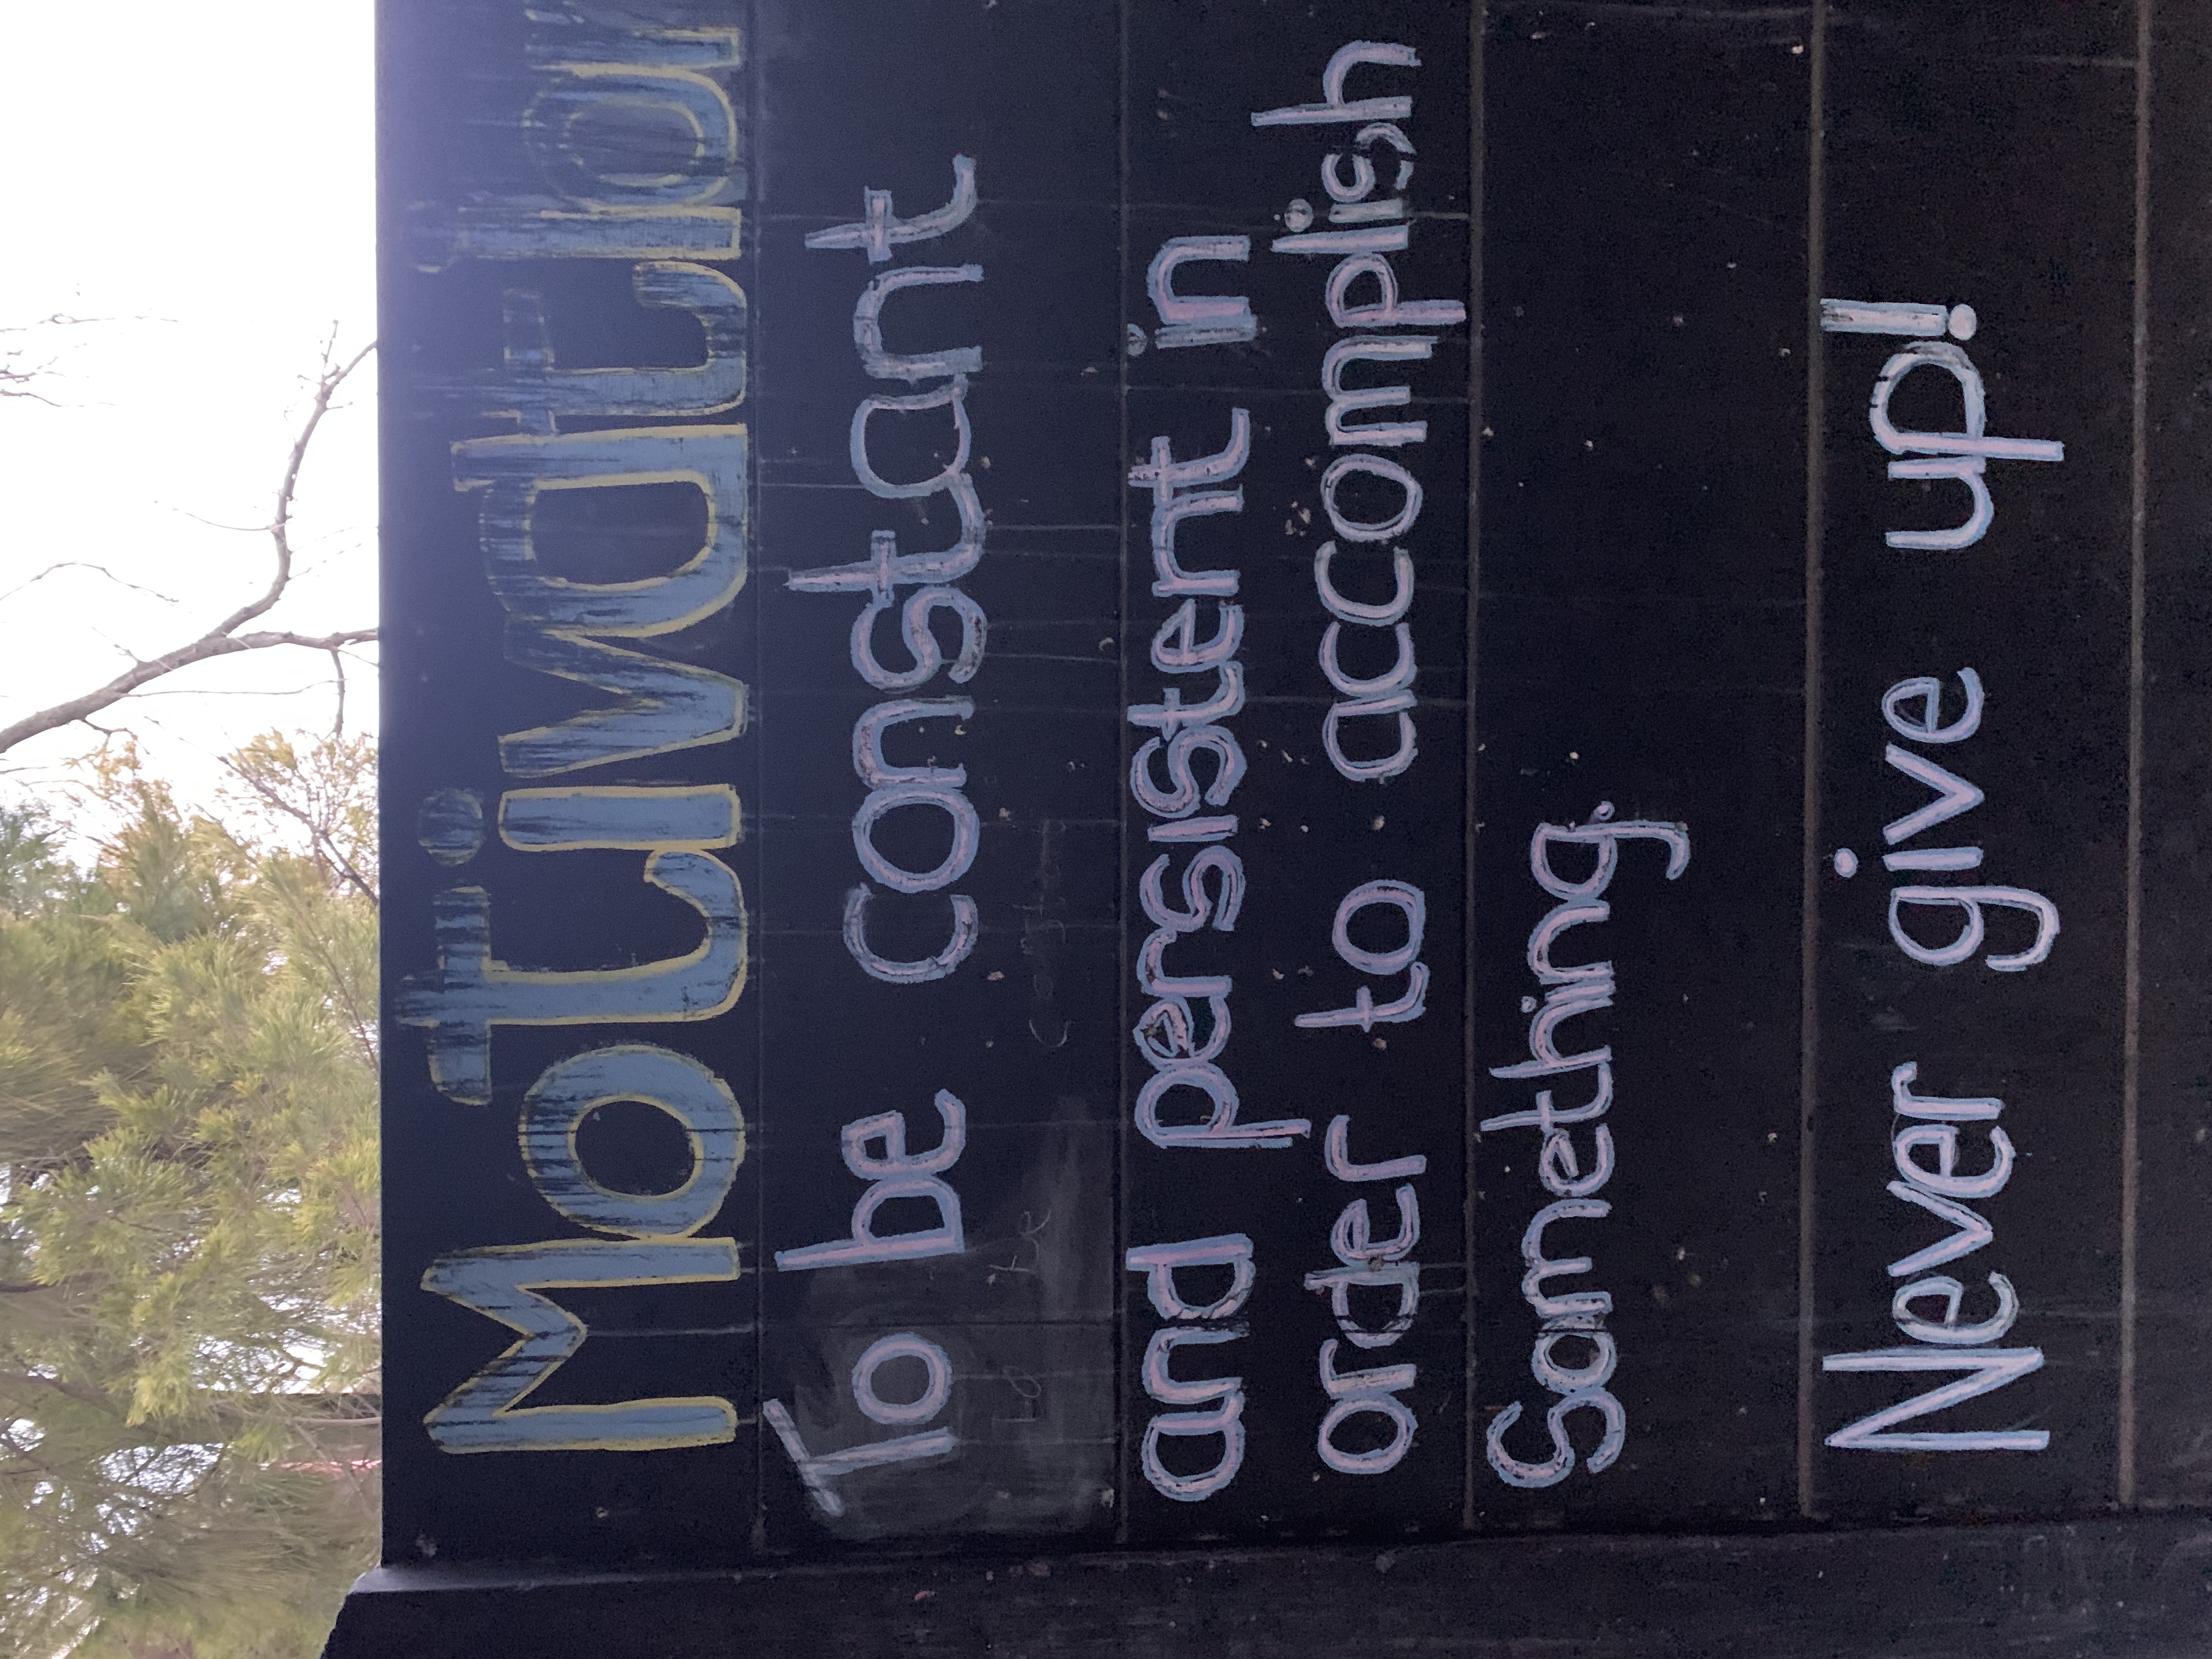 Motivation
To be constant
to be
and persistent in
order to accomplish
Something.
Never give up!